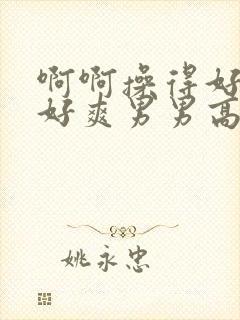 啊啊操得好
好爽男男高
姚永忠